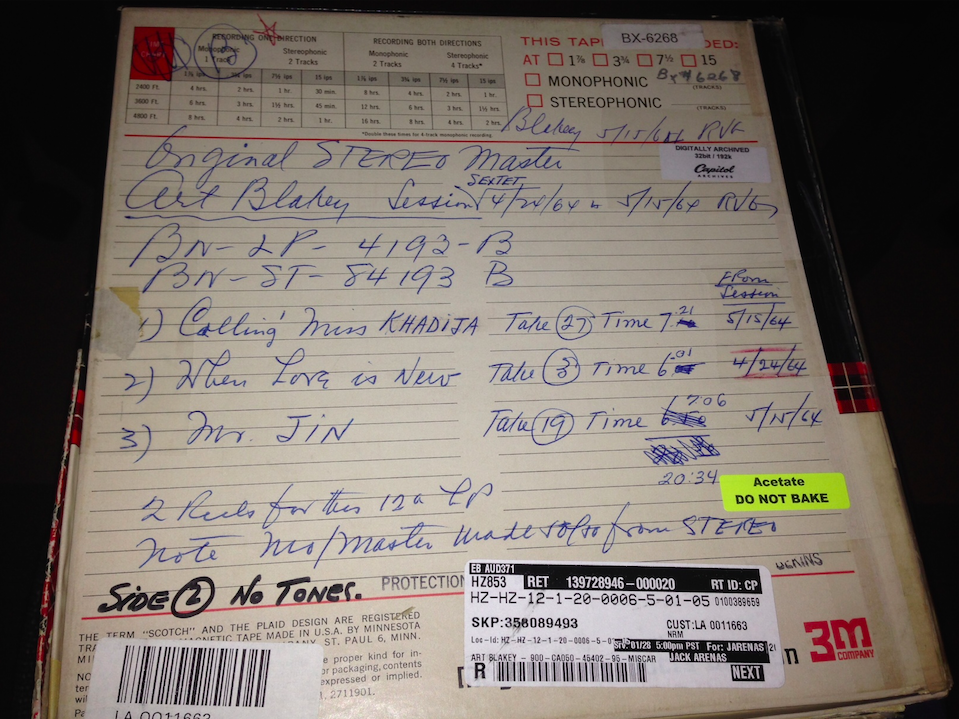 RECORDING ONE DIRECTION
Monophonic 1 Track
Stereophonic 2 Tracks
RECORDING BOTH DIRECTIONS
Monophonic 2 Tracks
Stereophonic 4 Tracks*
1⅞ ips 3¾ ips 7½ ips 15 ips 1⅞ ips 3¾ ips 7½ ips 15 ips
2400 Ft. 4 hrs. 2 hrs. 1 hr. 30 min. 8 hrs. 4 hrs. 2 hrs. 1 hr.
3600 Ft. 6 hrs. 3 hrs. 1½ hrs. 45 min. 12 hrs. 6 hrs. 3 hrs. 1½ hrs.
4800 Ft. 8 hrs. 4 hrs. 2 hrs. 1 hr. 16 hrs. 8 hrs. 4 hrs. 2 hrs.
*Double these times for 4-track monophonic recording.
B
BX-6268
THIS TAPE DED:
AT 1⅞ 3¾ 7½ 15
MONOPHONIC Bx#6268
(TRACKS)
STEREOPHONIC
(TRACKS)
Blakey 5/15/64 RVG
DIGITALLY ARCHIVED
32bit / 192k
Capitol
ARCHIVES
Original STEREO Master
SEXTET
Art Blakey Session 4/24/64 5/15/64 RVG
BN-LP-4193-B
BN-ST-84193 B
From
Session
1) Calling Miss KHADIJA Take 27 Time 7:21 5/15/64
2) When Love is New Take 3 Time 6:01 4/24/64
3) Mr. JIN Take 19 Time 7:06 5/15/64
20:34
2 Reels for this 12" LP
Acetate
DO NOT BAKE
Note Mo/Master made 50/50 from STEREO
SIDE 2 No Tones.
PROTECTION
BEKINS
THE TERM "SCOTCH" AND THE PLAID DESIGN ARE REGISTERED
MAGNETIC TAPE MADE IN U.S.A. BY MINNESOTA
ST. PAUL 6, MINN.
proper kind for in-
or packaging, contents
expressed or implied.
2711901.
LA 0011663
EB AUD371
HZ853 RET 139728946-000020 RT ID: CP
HZ-HZ-12-1-20-0006-5-01-05 0100389659
SKP:358089493 CUST:LA 0011663
NRM
Loc-Id: HZ-HZ-12-1-20-0006-5-0
Srv: 01/28 5:00pm PST For: JARENAS
ART BLAKEY - 900-CA050-46402-95-MISCAR JACK ARENAS
R NEXT
3M
COMPANY